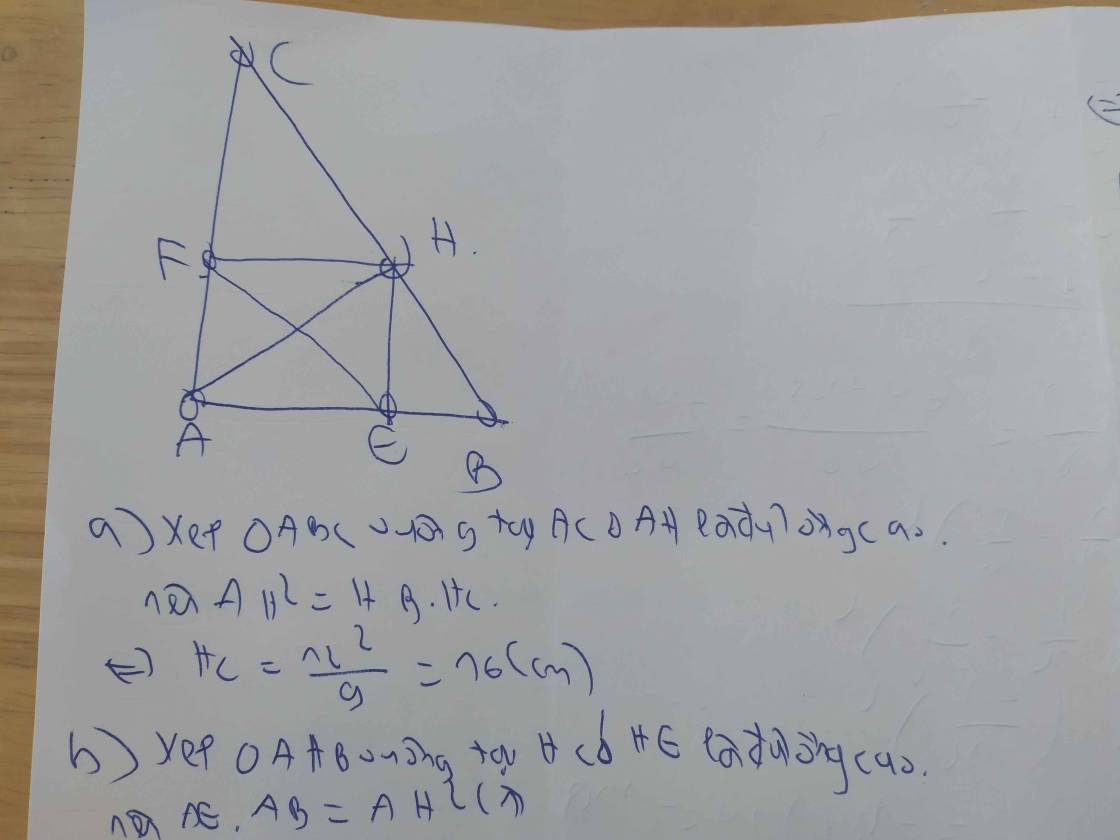 C
F
H.
A
E
B
a) Xét ΔABC vuông tại A có AH là đường cao.
nên AH² = HB.HC.
⇔ HC = 12²/9 = 16(cm)
b) Xét ΔAHB vuông tại H có HE là đường cao.
nên AE.AB = AH² (1)